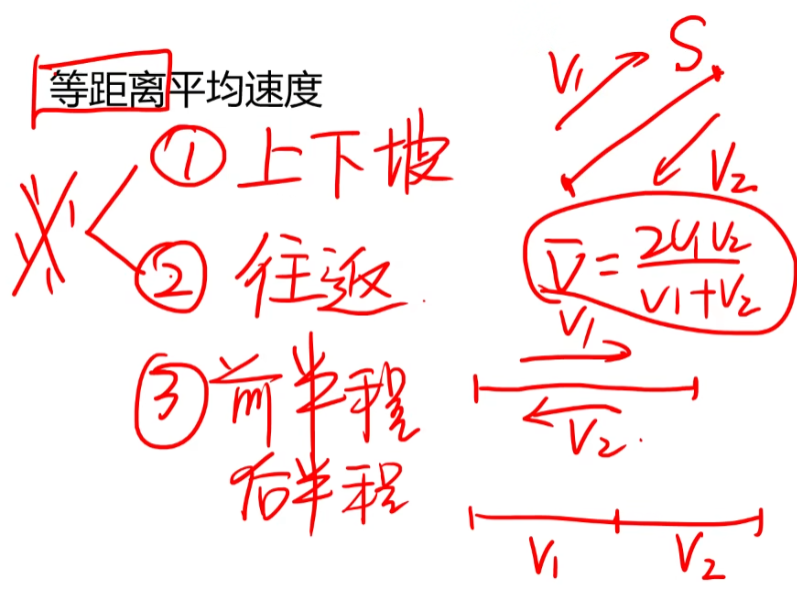 等距离平均速度
① 上下坡
② 往返
③ 前半程
后半程
S
V₁
V₂
V̅ = 2V₁V₂ / V₁+V₂
V₁
V₂
V₁ V₂